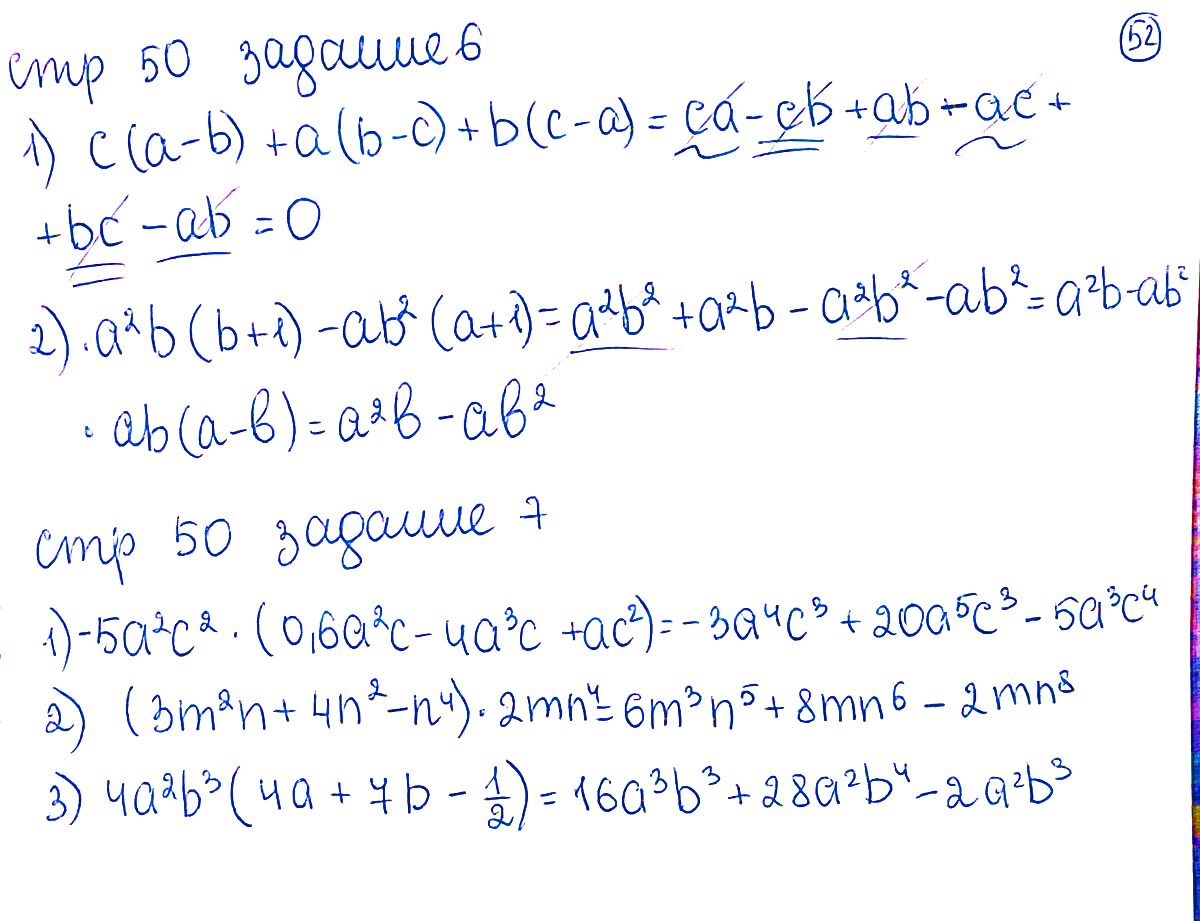 52
стр 50 задание 6
1) c(a-b)+a(b-c)+b(c-a)=ca-cb+ab-ac+
+bc-ab=0
2)·a²b(b+1)-ab²(a+1)=a²b²+a²b-a²b²-ab²=a²b-ab²
·ab(a-b)=a²b-ab²
стр 50 задание 7
1)-5a²c²·(0,6a²c-4a³c+ac²)=-3a⁴c³+20a⁵c³-5a³c⁴
2) (3m²n+4n²-n⁴)·2mn⁴=6m³n⁵+8mn⁶-2mn⁸
3) 4a²b³(4a+7b-1/2)=16a³b³+28a²b⁴-2a²b³